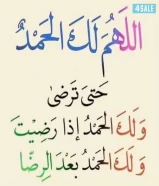 4SALE
اللَّهُمَّ لَكَ الحَمْدُ
حَتىٰ تَرضىٰ
وَلَكَ الحَمْدُ إِذا رَضِيتَ
وَلَكَ الحَمْدُ بَعْدَ الرِضَا